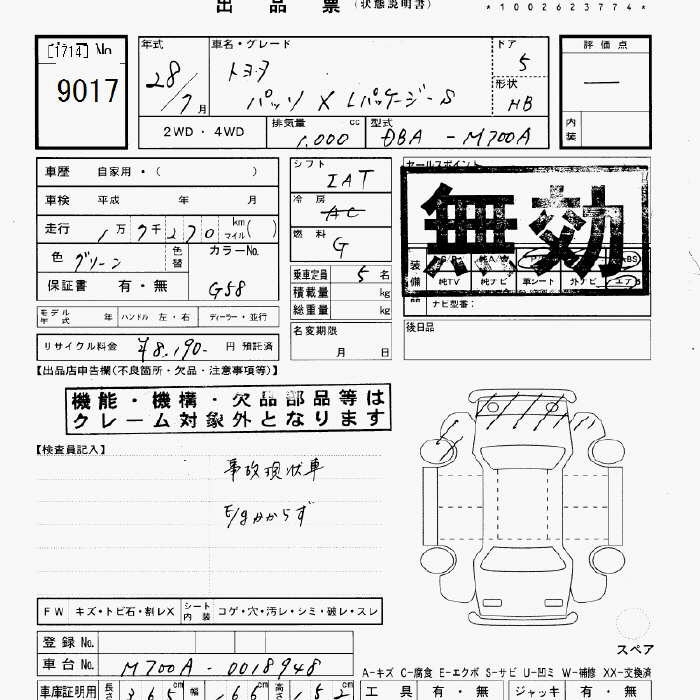 出品票 (状態説明書)
*1002623774*
[1714] No
9017
年式 28/7月
車名・グレード
トヨタ
パッソ X Lパッケージ-S
ドア 5
形状 HB
評価点
—
内装
2WD・4WD
排気量 1,000 cc
型式 DBA - M700A
車歴 自家用・( )
車検 平成 年 月
走行 1万7千270 km マイル( )
色 グリーン 色替 カラーNo. G58
保証書 有・無
シフト IAT
冷房 AC
燃料 G
乗車定員 5名
積載量 kg
総重量 kg
名変期限
月 日
セールスポイント
無効
装備品
純TV 純ナビ 革シート 外ナビ エアB
ナビ型番:
後日品
モデル年式 年 ハンドル 左・右 ディーラー・並行
リサイクル料金 ¥8,190- 円 預託済
【出品店申告欄(不良箇所・欠品・注意事項等)】
機能・機構・欠品部品等は
クレーム対象外となります
【検査員記入】
事故現状車
E/gかからず
FW キズ・トビ石・割レX シート内装 コゲ・穴・汚レ・シミ・破レ・スレ
スペア
登録No.
車台No. M700A - 0018948
A-キズ C-腐食 E-エクボ S-サビ U-凹ミ W-補修 XX-交換済
車庫証明用 長さ 365cm 幅 166cm 高さ 152cm
工具 有・無 ジャッキ 有・無